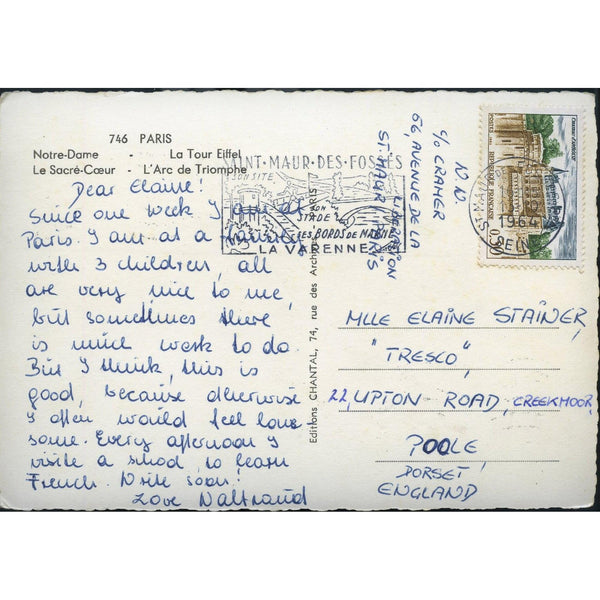 746 PARIS
Notre-Dame - La Tour Eiffel
Le Sacré-Cœur - L'Arc de Triomphe
Dear Elaine!
Since one week I am at
Paris. I am at a
with 3 children, all
are very nice to me,
but sometimes there
is much work to do.
But I think, this is
good, because otherwise
I often would feel lone
some. Every afternoon I
visite a school, to learn
French. Write soon!
Love Waltraud
Editions CHANTAL, 74, rue des Archives PARIS
SAINT-MAUR-DES-FOSSÉS
SON SITE
SON
STADE
SES BORDS DE MARNE
LA VARENNE
N.N.
c/o CRAMER
66, AVENUE DE LA
LIBERATION
ST. MAUR PARIS
POSTES
REPUBLIQUE FRANÇAISE
0,30
1964
SEINE
MLLE ELAINE STAINER,
"TRESCO",
22, UPTON ROAD, CREEKMOOR,
POOLE
DORSET
ENGLAND